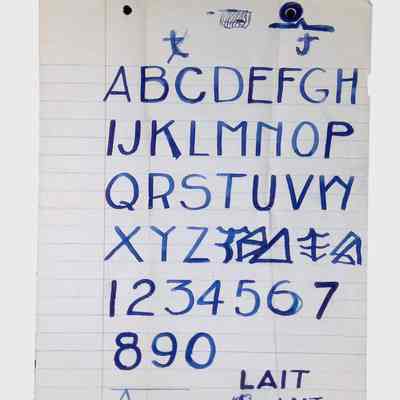 K J
ABCDEFGH
IJKLMNOP
QRSTUVW
XYZ
1234567
890
LAIT